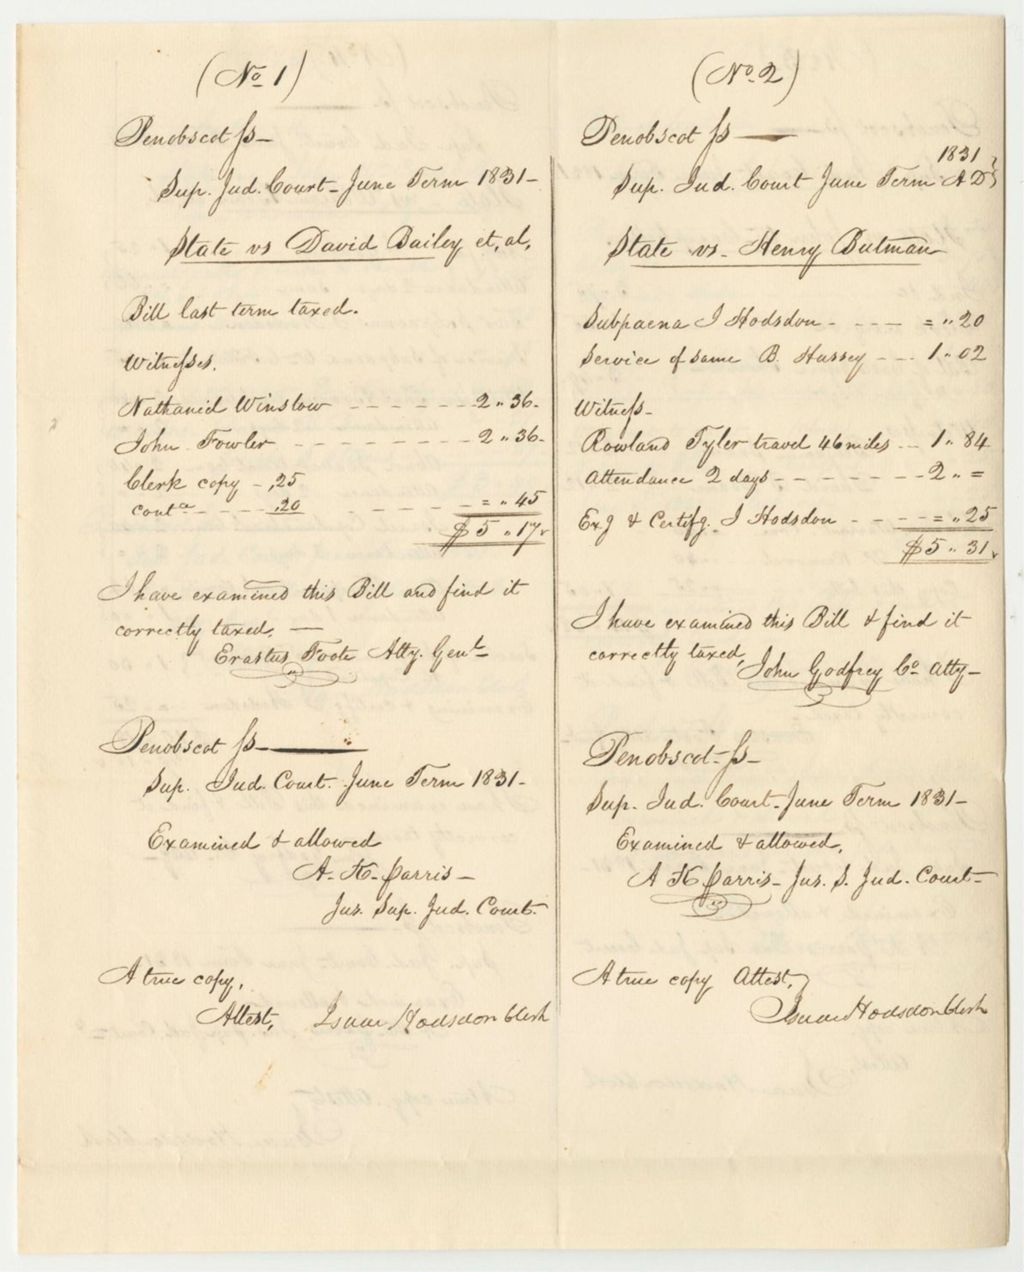 (No 1)
Penobscot ss—
Sup. Jud. Court - June Term 1831-
State vs David Bailey et. al.
Bill last term taxed.
Witnesses.
Nathaniel Winslow - - - - - 2 " 36-
John Fowler - - - - - - - 2 " 36-
Clerk copy - ,25
conta - - - ,20 - - - - - = " 45
$5 " 17
I have examined this Bill and find it
correctly taxed. —
Erastus Foote Atty. Genl-
Penobscot ss—
Sup. Jud. Court. June Term 1831-
Examined & allowed
A. K. Parris -
Jus. Sup. Jud. Court.
A true copy,
Attest, Isaac Hodsdon Clerk
(No. 2)
Penobscot ss —
Sup. Jud. Court June Term 1831 A D
State vs. Henry Butman
Subpaena I Hodsdon - - - - = " 20
Service of same B. Hussey - - - 1 " 02
Witness-
Rowland Tyler travel 46 miles - - 1 " 84
Attendance 2 days - - - - - - - 2 " =
Exg & Certifg. I Hodsdon - - - - = " 25
$5 " 31
I have examined this Bill & find it
correctly taxed, John Godfrey Co Atty-
Penobscot - ss-
Sup. Jud. Court - June Term 1831-
Examined & allowed,
A K Parris - Jus. S. Jud. Court-
A true copy Attest,
Isaac Hodsdon Clerk